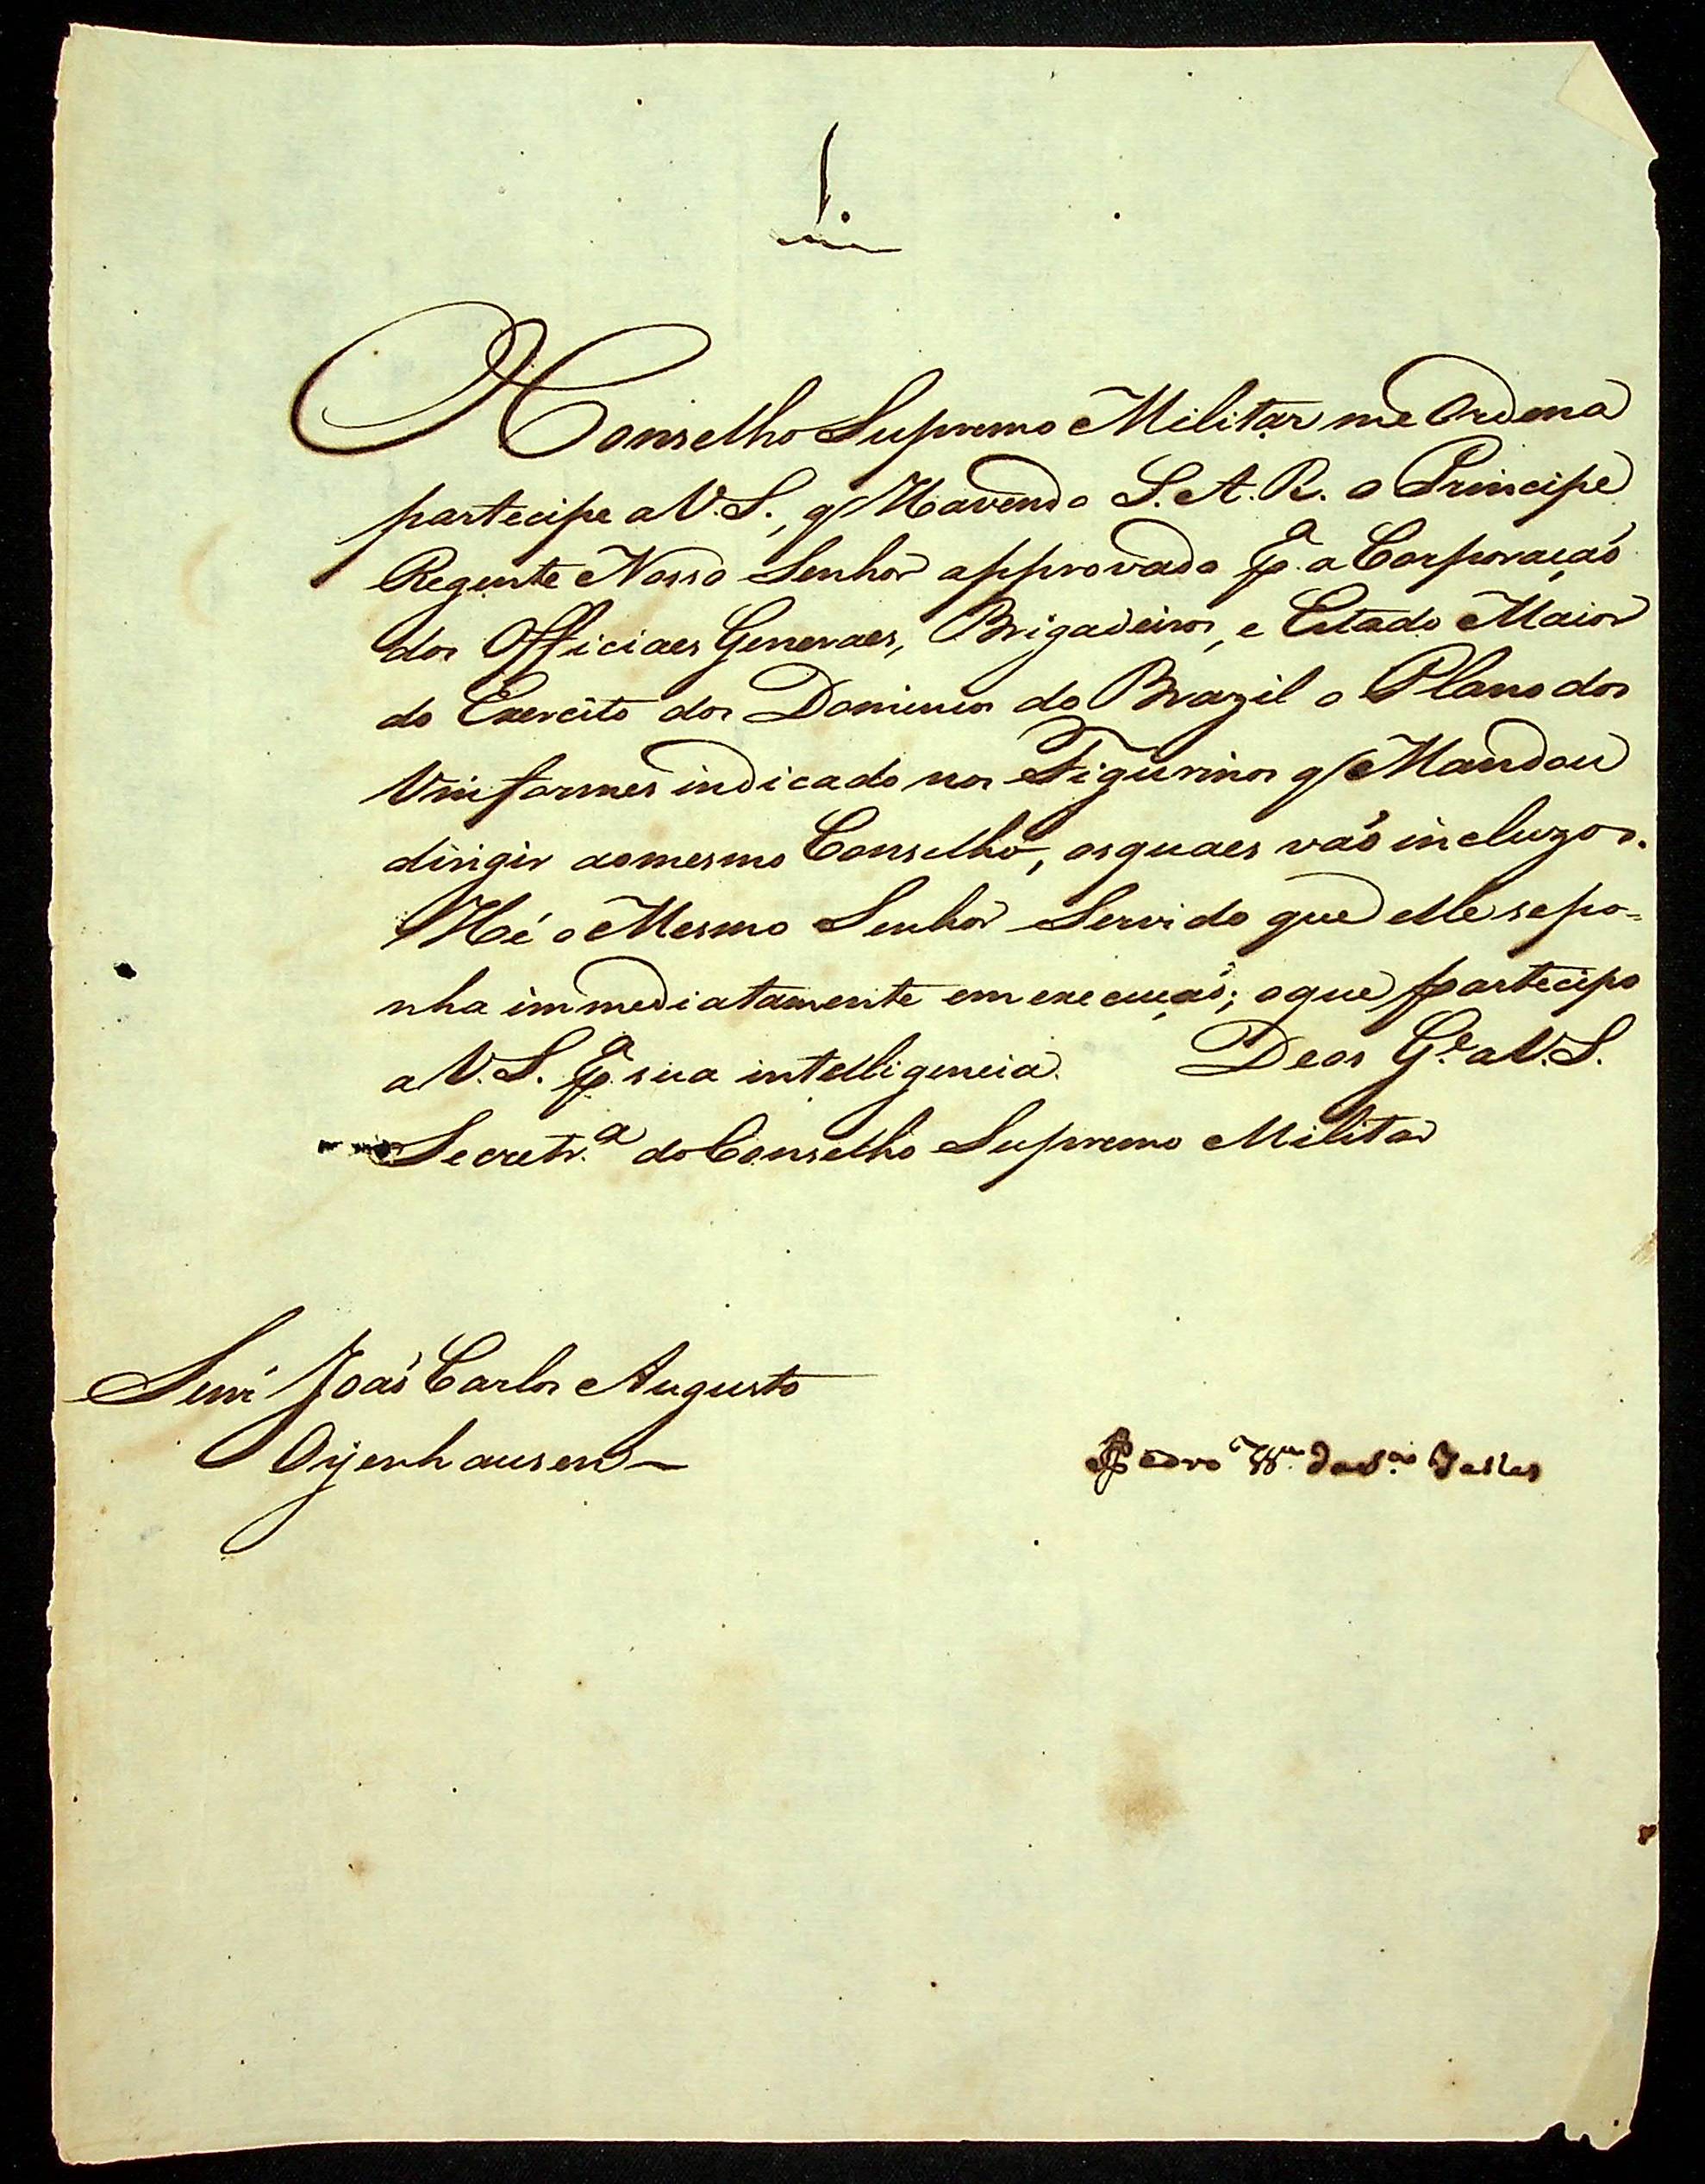 1.
O Conselho Supremo Militar me Ordena
partecipe a V.S., q̃ Havendo S.A.R. o Principe
Regente Nosso Senhor approvado p.ª a Corporaçaõ
dos Officiaes Generaes, Brigadeiros, e Estado Maior
do Exercito dos Dominios do Brazil o Plano dos
Uniformes indicado nos Figurinos q̃ Mandou
dirigir ao mesmo Conselho, os quaes vaõ incluzos.
Hé o Mesmo Senhor Servido que elle se po=
nha immediatamente em execuçaõ; o que partecipo
a V.S. p.ª sua intelligencia. Deos G.e a V.S.
Secretr.ª do Conselho Supremo Militar
Senr̃ Joaõ Carlos Augusto
Oyenhausen
Pedro da Telles